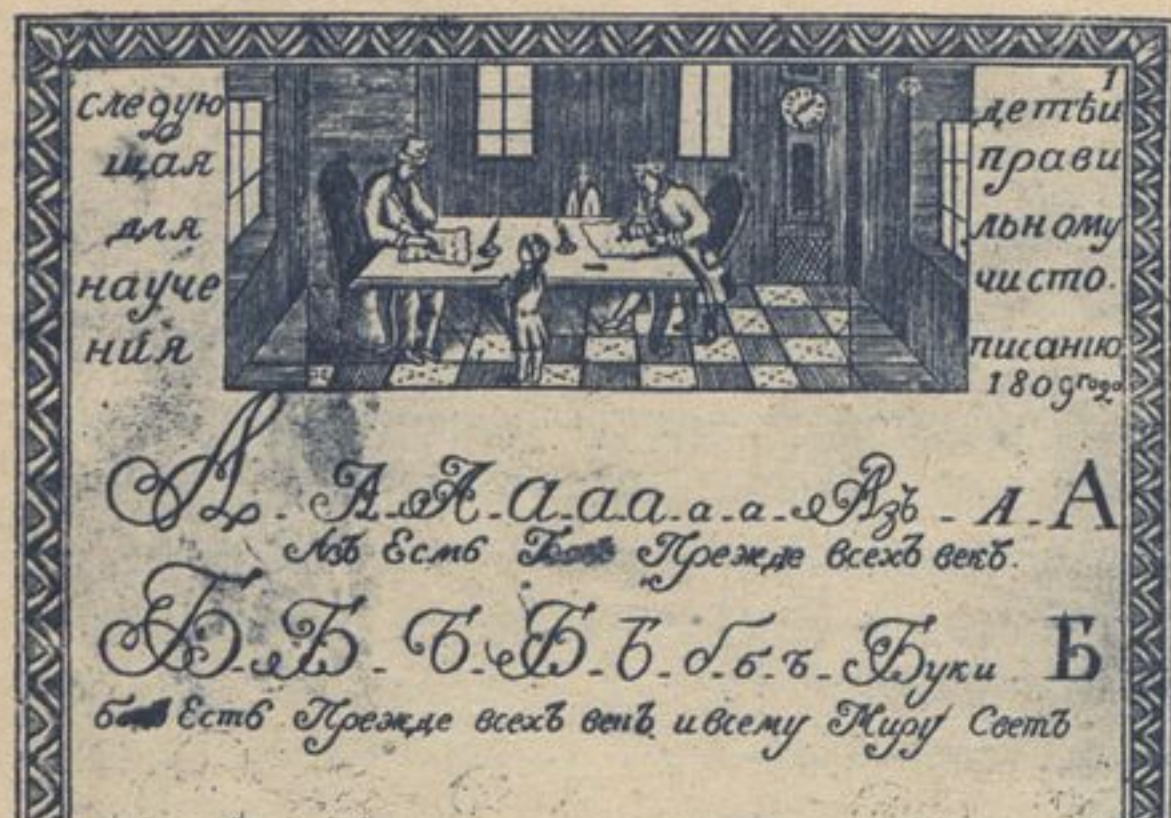 1
следую
щая
для
науче
ния
детѣи
прави
льному
чисто.
писанію
1809 года
А - А - А - а - а - а - а - а - Азъ - А - А
Азъ Есмь Прежде всехъ векъ.
Б - Б - Б - Б - Б - б - б - ъ - Буки Б
Есть Прежде всехъ векъ и всему Миру Светъ